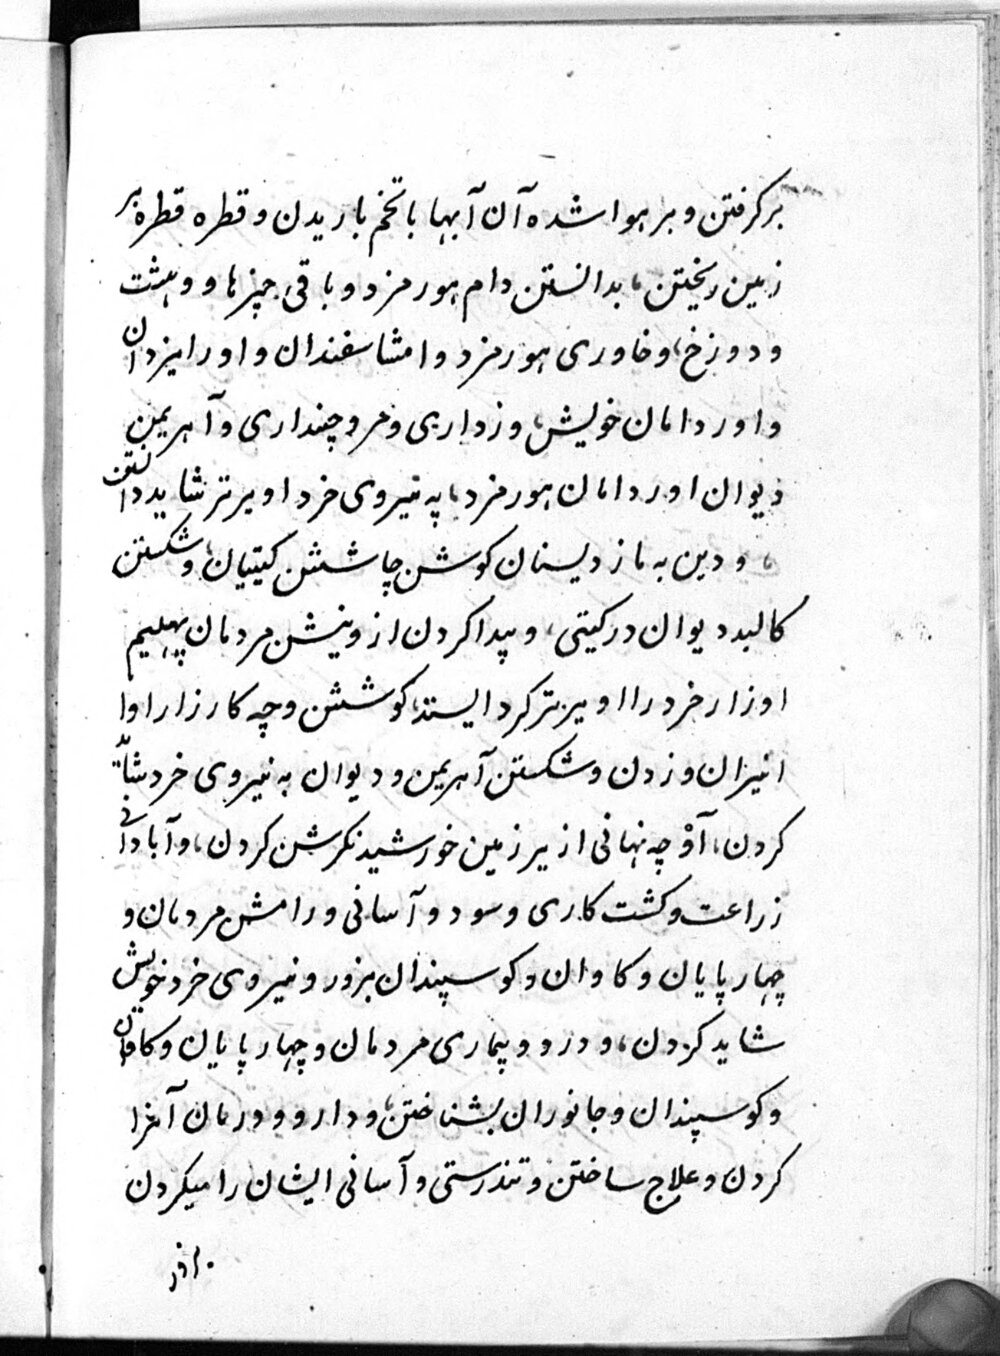 برگرفتن و بر هوا شده آن آبها با تخم باریدن و قطره قطره بر
زمین ریختن، بدانستن دام هورمزد و باقی چیزها و وهشت
و دوزخ، و خاوری هورمزد و امشاسفندان و اورا یزدان
و اور دامان خویش، وزداری و مروچنداری و آهریمن
دیوان اور دامان هورمزد، په نیروی خرد اویرتر شاید دانستن
، و دین به مازدیسنان کوشن چاشش کیتیان، و شکستن
کالبد دیوان در کیتی، و پیدا کردن از وینش مردمان پهلیم
اوزار خرد را اویزتر کرد ایستد، کوشش و چه کارزار اوا
انیران و زدن و شکستن آهریمن و دیوان به نیروی خرد شاید
کردن، آو چه نهانی ازیر زمین خورشید نکرشن کردن، و آبادانی
زراعت و کشت کاری و سود و آسانی و رامش مردمان و
چهار پایان و کاوان و کوسپندان بزور و نیروی خرد خویش
شاید کردن، و درد و بیماری مردمان و چهار پایان و کاوان
و کوسپندان و جانوران بشناختن، و دارو و درمان آنرا
کردن و علاج ساختن و تندرستی و آسانی ایشان را میکردن